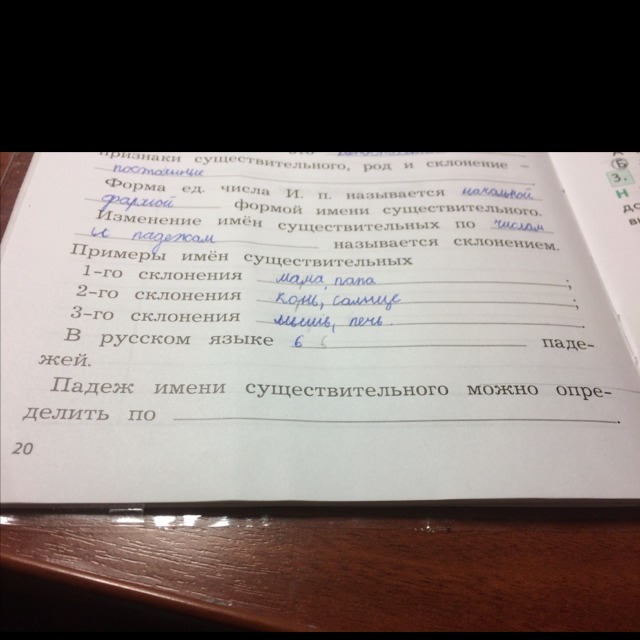 признаки существительного, род и склонение –
постоянные
Форма ед. числа И. п. называется начальной
формой формой имени существительного.
Изменение имён существительных по числам
и падежам называется склонением.
Примеры имён существительных
1-го склонения мама, папа ;
2-го склонения конь, солнце ;
3-го склонения мышь, печь .
В русском языке 6 6 паде-
жей.
Падеж имени существительного можно опре-
делить по .
20
3.
Н